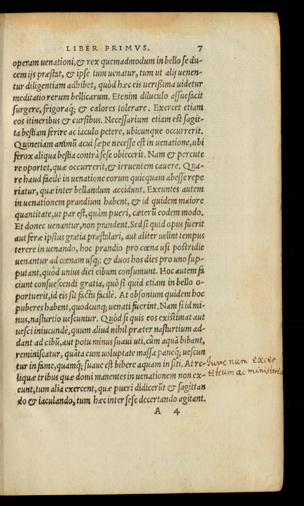 LIBER PRIMVS. 7
operam uenationi, & rex quemadmodum in bello se du-
cem ijs præstat, & ipse tum uenatur, tum ut alij uenen-
tur diligentiam adhibet, quòd hæc eis uerissima uidetur
meditatio rerum bellicarum. Etenim diluculo assuefacit
surgere, frigoraq́; & calores tolerare. Exercet etiam
eos itineribus & cursibus. Necessarium etiam est sagit-
ta bestiam ferire ac iaculo petere, ubicunque occurrerit.
Quinetiam animū acui sæpe necesse est in uenatione, ubi
ferox aliqua bestia contrà sese obiecerit. Nam & percute
re oportet, quæ occurrerit, & irruentem cauere. Qua-
re haud facilè in uenatione eorum quicquam abesse repe
riatur, quæ inter bellandum accidunt. Exeuntes autem
in uenationem prandium habent, & id quidem maiore
quantitate, ut par est, quàm pueri, cæterū eodem modo.
Et donec uenantur, non prandent. Sed si quid opus fuerit
aut feræ ipsius gratia præstolari, aut aliter uelint tempus
terere in uenando, hoc prandio pro cœna usi postridie
uenantur ad cœnam usq́; & duos hos dies pro uno sup-
putant, quòd unius diei cibum consumunt. Hoc autem fa
ciunt consuescendi gratia, quò si quid etiam in bello o-
portuerit, id eis sit factu facilè. At obsonium quidem hoc
puberes habent, quodcunq; uenati fuerint. Nam si id mi-
nus, nasturtio uescuntur. Quòd si quis eos existimat aut
uesci iniucundè, quum aliud nihil præter nasturtium ad-
dant ad cibū, aut potu minus suaui uti, cùm aquā bibant,
reminiscatur, quāta cum uoluptate massa paneq́; uescun
tur in fame, quamq́; suaue est bibere aquam in siti. At re-
liquæ tribus quæ domi manentes in uenationem non ex-
eunt, tum alia exercent, quæ pueri didicerūt & sagittan
do & iaculando, tum hæc inter sese decertando agitant.
A 4